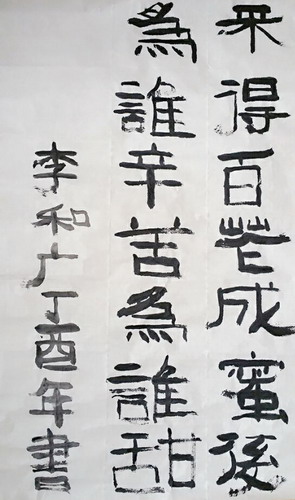 采得百花成蜜後
為誰辛苦為誰甜
李和广丁酉年書